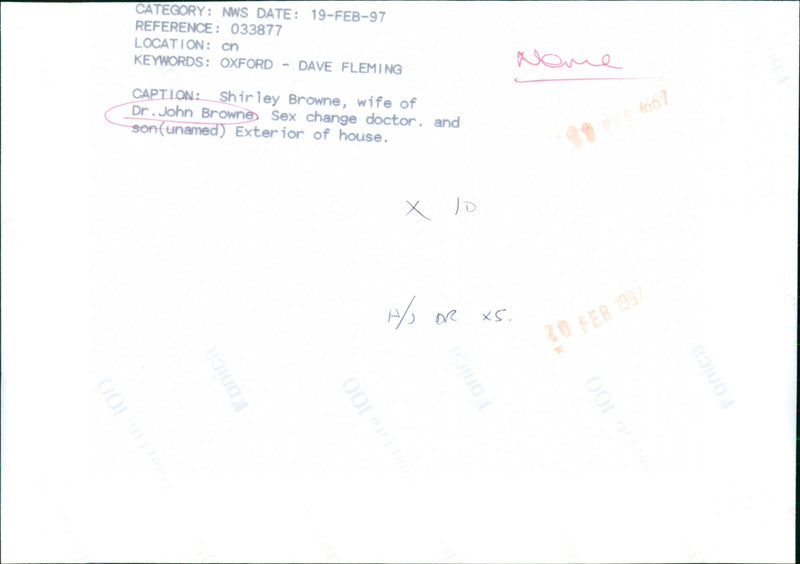 CATEGORY: NWS DATE: 19-FEB-97
REFERENCE: 033877
LOCATION: cn
KEYWORDS: OXFORD - DAVE FLEMING
Name
CAPTION: Shirley Browne, wife of
Dr.John Browne, Sex change doctor. and
son(unamed) Exterior of house.
FEB 1997
X 10
A/S DR X5.
20 FEB 1997
Konica
Konica
Konica
100
100
100